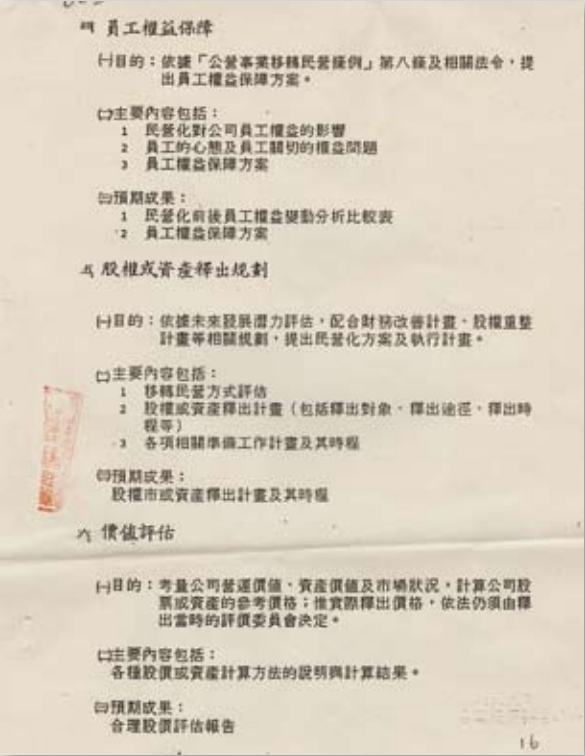 四 員工權益保障
㈠目的：依據「公營事業移轉民營條例」第八條及相關法令，提
出員工權益保障方案。
㈡主要內容包括：
1 民營化對公司員工權益的影響
2 員工的心態及員工關切的權益問題
3 員工權益保障方案
㈢預期成果：
1 民營化前後員工權益變動分析比較表
2 員工權益保障方案
五 股權或資產釋出規劃
㈠目的：依據未來發展潛力評估，配合財務改善計畫、股權重整
計畫等相關規劃，提出民營化方案及執行計畫。
㈡主要內容包括：
1 移轉民營方式評估
2 股權或資產釋出計畫（包括釋出對象、釋出途徑、釋出時
程等）
3 各項相關準備工作計畫及其時程
㈢預期成果：
股權市或資產釋出計畫及其時程
六 價值評估
㈠目的：考量公司營運價值、資產價值及市場狀況，計算公司股
票或資產的參考價格；惟實際釋出價格，依法仍須由釋
出當時的評價委員會決定。
㈡主要內容包括：
各種股價或資產計算方法的說明與計算結果。
㈢預期成果：
合理股價評估報告
16